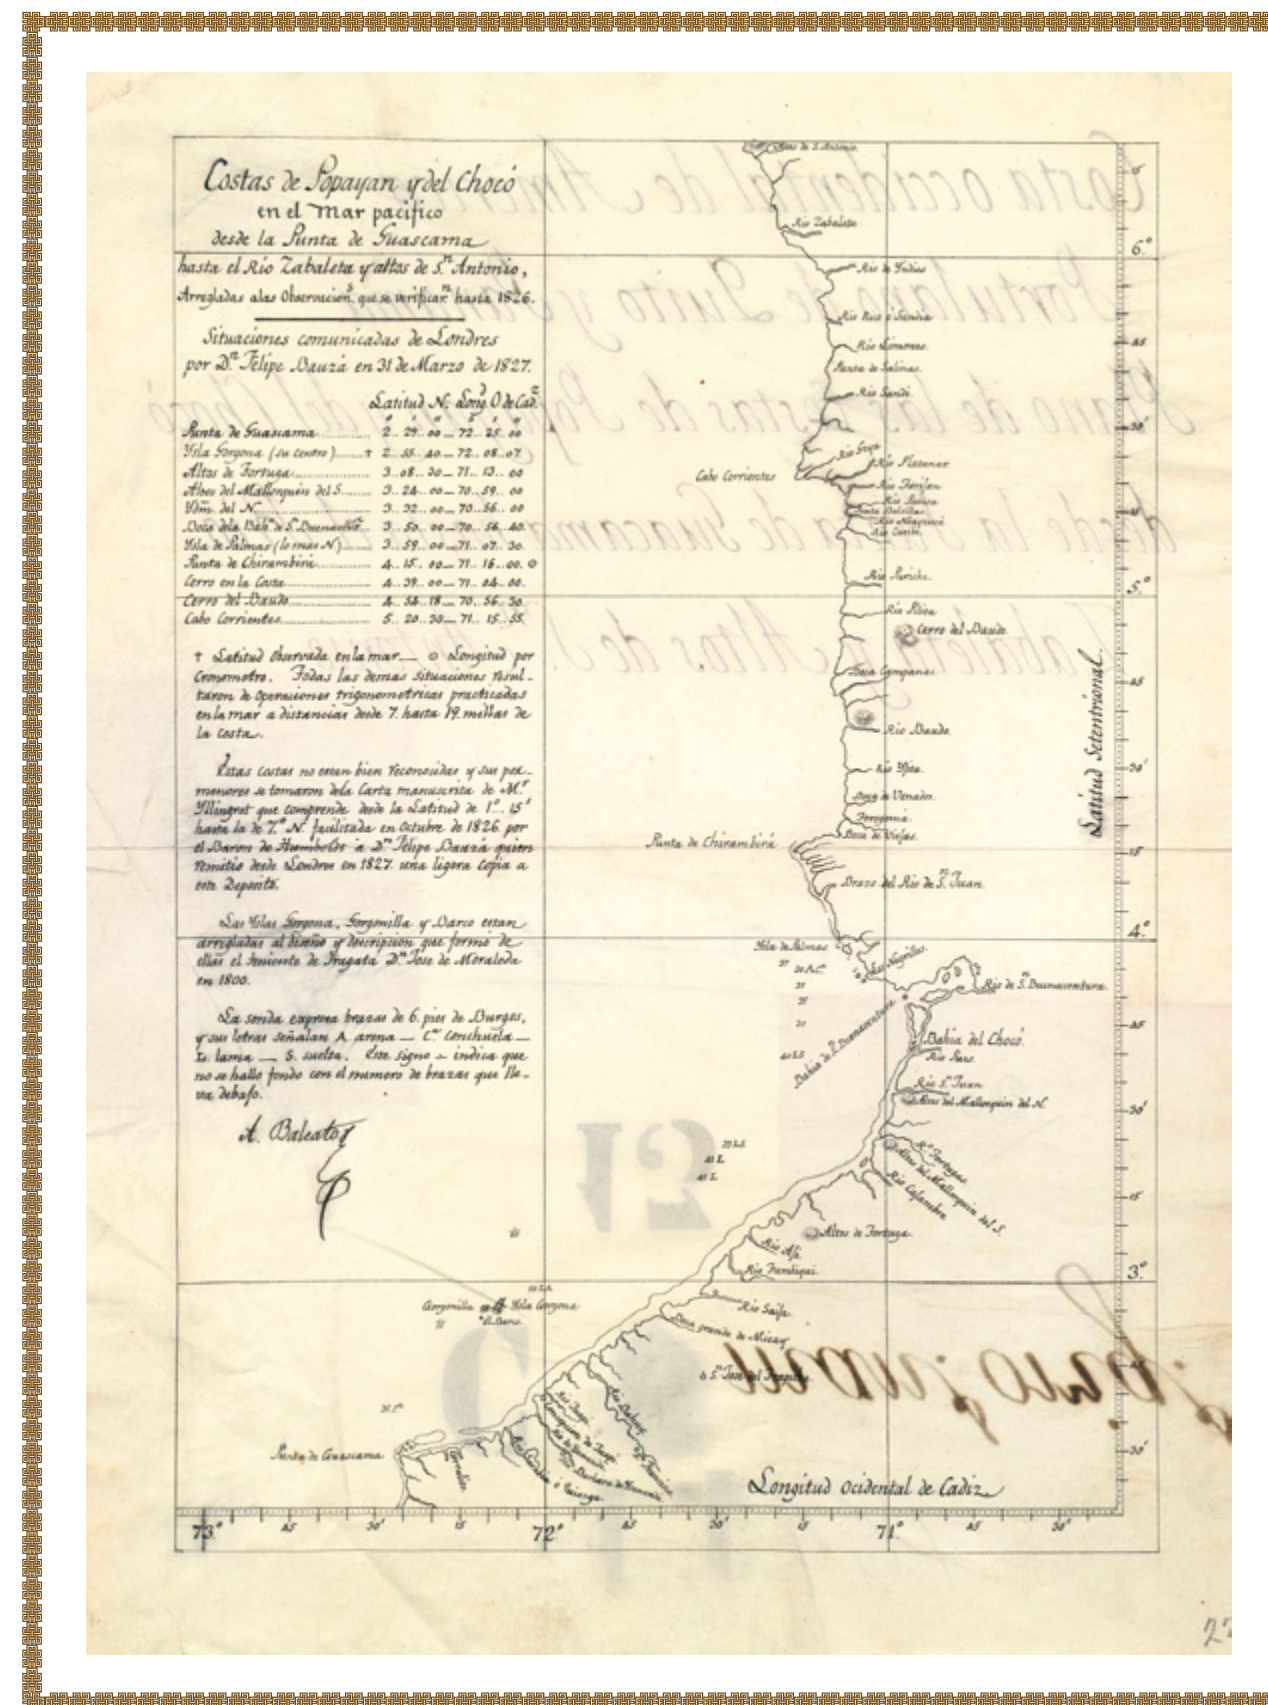 Costas de Popayan y del Chocó
en el Mar pacifico
desde la Punta de Guascama
hasta el Rio Zabaleta y altos de S.n Antonio,
Arregladas a las Observacion.s que se verificar.n hasta 1826.
Situaciones comunicadas de Londres
por D.n Felipe Bauzá en 31 de Marzo de 1827.
Latitud N. Long.d O. de Cad.z
Punta de Guascama 2.. 29.. 00 — 72.. 25.. 00
Ysla Gorgona (su centro) † 2.. 55.. 40 — 72.. 08.. 07
Altos de Tortuga 3.. 08.. 30 — 71.. 13.. 00
Altos del Mallonquin del S. 3.. 24.. 00 — 70.. 59.. 00
Ydm. del N. 3.. 32.. 00 — 70.. 56.. 00
Boca de la Bah.a de S.n Buenavent.a 3.. 50.. 00 — 70.. 56.. 40.
Ysla de Palmas (lo mas N) 3.. 59.. 00 — 71.. 07.. 30.
Punta de Chirambirá 4.. 15.. 00 — 71.. 16.. 00. ⊙
Cerro en la Costa 4.. 39.. 00 — 71.. 04.. 00.
Cerro del Baudo 4.. 54.. 18 — 70.. 56.. 30
Cabo Corrientes 5.. 20.. 30 — 71.. 15.. 55.
† Latitud observada en la mar — ⊙ Longitud por
Cronometro. Todas las demas situaciones resul-
taron de operaciones trigonometricas practicadas
en la mar a distancias desde 7. hasta 19. millas de
la costa.
Estas costas no estan bien reconocidas y sus por-
menores se tomaron de la Carta manuscrita de M.r
Yllingrot que comprende desde la Latitud de 1°.. 15'
hasta la de 7.° N. facilitada en Octubre de 1826. por
el Baron de Humboldt à D.n Felipe Bauzá quien
remitio desde Londres en 1827. una ligera copia a
este Deposito.
Las Yslas Gorgona, Gorgonilla y Barco estan
arregladas al diseño y descripcion que formó de
ellas el teniente de Fragata D.n Jose de Moraleda
en 1800.
La sonda expresa brazas de 6. pies de Burgos,
y sus letras señalan A. arena — C.a conchuela —
L. lama — S. suelta. Este signo ~ indica que
no se hallo fondo con el numero de brazas que lle-
va debajo.
A. Baleato
Altos de S. Antonio
Rio Zabaleta
6.°
Rio de Yndios
Rio Limones.
45
Punta de Salinas.
Rio Sandi
30'
Cabo Corrientes
Rio Platanar
Rio Puricha.
5.°
Cerro del Baudo.
Boca Campanas
45
Rio Baudo.
30'
Boca de Venado.
Boca de Viejas.
Punta de Chirambirá
15
Brazo del Rio de S.n Juan.
4.°
Ysla de Palmas
Los Negrillos
Rio de S.n Buenaventura.
Bahia de S.n Buenaventura
45
Bahia del Chocó.
Rio S.n Juan
Altos del Mallonquin del N.
30'
R.o Tortugas
Altos del Mallonquin del S.
Rio Cajambre
15
Altos de Tortuga.
Rio Aji
3.°
Gorgonilla
Ysla Gorgona
El Barco.
Rio Saija
Boca grande de Micay
Punta de Guascama
30'
Latitud Setentrional.
Longitud Ocidental de Cadiz
73.° 45 30' 15 72.° 45 30' 15 71.° 45 30'